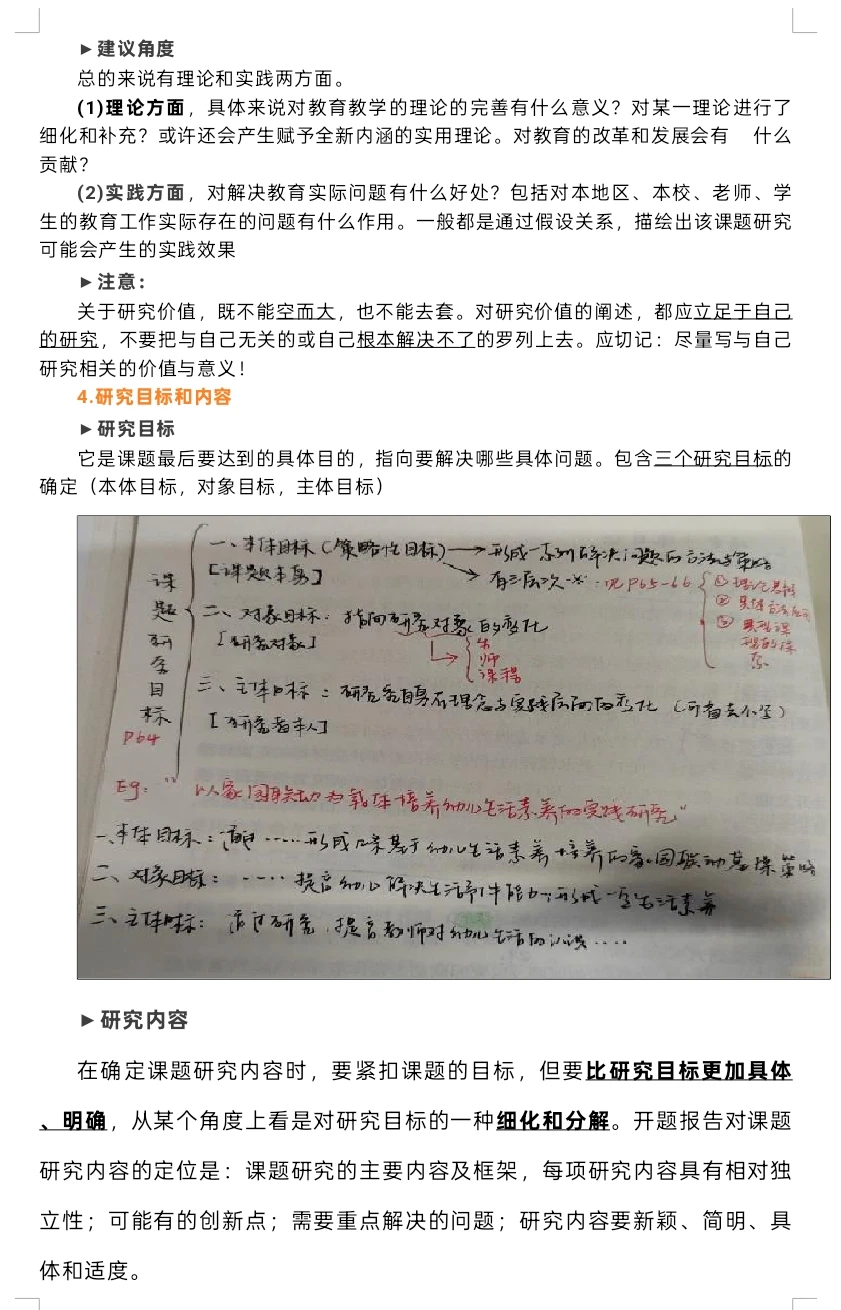 ►建议角度
总的来说有理论和实践两方面。
(1)理论方面，具体来说对教育教学的理论的完善有什么意义？对某一理论进行了
细化和补充？或许还会产生赋予全新内涵的实用理论。对教育的改革和发展会有 什么
贡献？
(2)实践方面，对解决教育实际问题有什么好处？包括对本地区、本校、老师、学
生的教育工作实际存在的问题有什么作用。一般都是通过假设关系，描绘出该课题研究
可能会产生的实践效果
►注意：
关于研究价值，既不能空而大，也不能去套。对研究价值的阐述，都应立足于自己
的研究，不要把与自己无关的或自己根本解决不了的罗列上去。应切记：尽量写与自己
研究相关的价值与意义！
4.研究目标和内容
►研究目标
它是课题最后要达到的具体目的，指向要解决哪些具体问题。包含三个研究目标的
确定（本体目标，对象目标，主体目标）
课题研究目标
P64
一、本体目标（策略性目标）→形成一系列解决问题的方法与策略
[课题本身]
→有三层次※：见P65-66
①理论基础
②具体方法应用
③典型课
二、对象目标：指向研究对象的变化
[研究对象]
生
师
课程
三、主体目标：研究者自身在理念与实践层面的变化（可省去不写）
[研究者本人]
Eg："以家园联动为载体培养幼儿生活素养的实践研究"
一、本体目标：通过……形成几条基于幼儿生活素养培养的家园联动 策略
二、对象目标：……提高幼儿解决生活事件能力，形成一定生活素养
三、主体目标：通过研究，提高教师对幼儿生活的认识……
►研究内容
在确定课题研究内容时，要紧扣课题的目标，但要比研究目标更加具体
、明确，从某个角度上看是对研究目标的一种细化和分解。开题报告对课题
研究内容的定位是：课题研究的主要内容及框架，每项研究内容具有相对独
立性；可能有的创新点；需要重点解决的问题；研究内容要新颖、简明、具
体和适度。